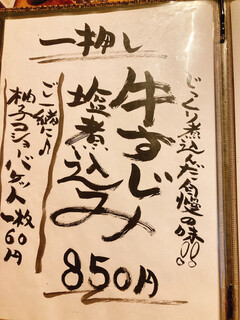 一押し
じっくり煮込んだ自慢の味!!
牛すじ
塩煮込み
850円
ご一緒に♪
柚子コショウバゲット一枚60円